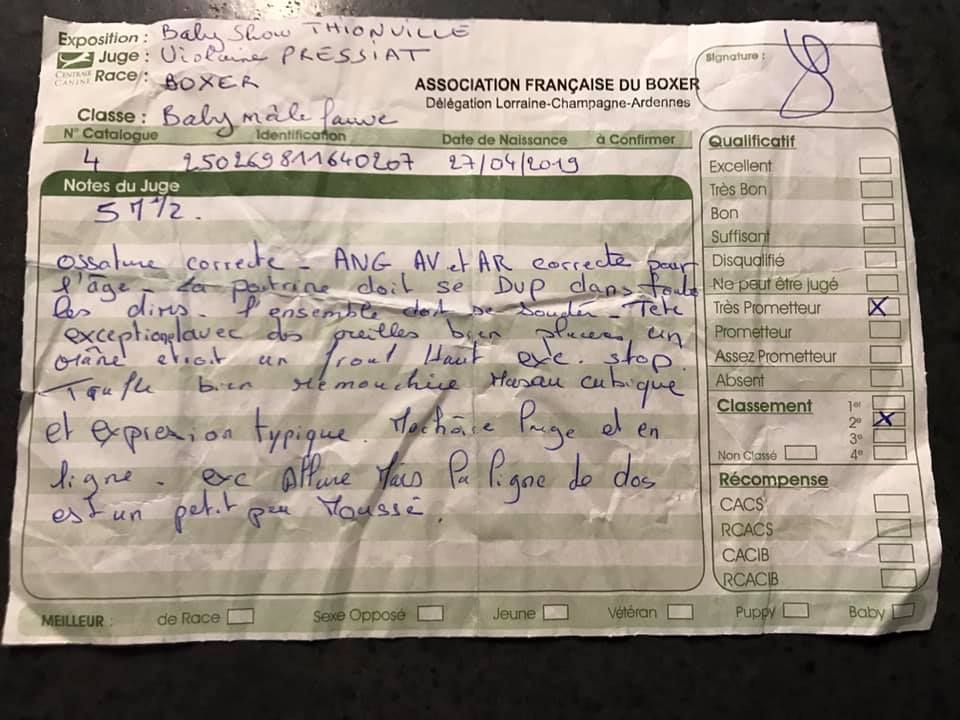 Exposition : Baby Show THIONVILLE
Juge : Violaine PRESSIAT
CENTRALE CANINE
Race : BOXER
Signature :
ASSOCIATION FRANÇAISE DU BOXER
Délégation Lorraine-Champagne-Ardennes
Classe : Baby mâle fauve
N° Catalogue Identification Date de Naissance à Confirmer
4 250269811640207 27/04/2019
Notes du Juge
57 1/2.
Ossature correcte - ANG AV et AR correcte pour
l'âge - La poitrine doit se DVP dans toute
les dims. L'ensemble doit se souder - Tete
exceptionel avec des oreilles bien placees un
crâne etroit un front Haut exc. stop.
bien Museau cubique
et expression typique. Machoire large et en
ligne. exc Allure Mais la ligne de dos
est un petit peu Moussé.
Qualificatif
Excellent
Très Bon
Bon
Suffisant
Disqualifié
Ne peut être jugé
Très Prometteur X
Prometteur
Assez Prometteur
Absent
Classement 1er
2e X
3e
Non Classé 4e
Récompense
CACS
RCACS
CACIB
RCACIB
MEILLEUR : de Race Sexe Opposé Jeune Vétéran Puppy Baby